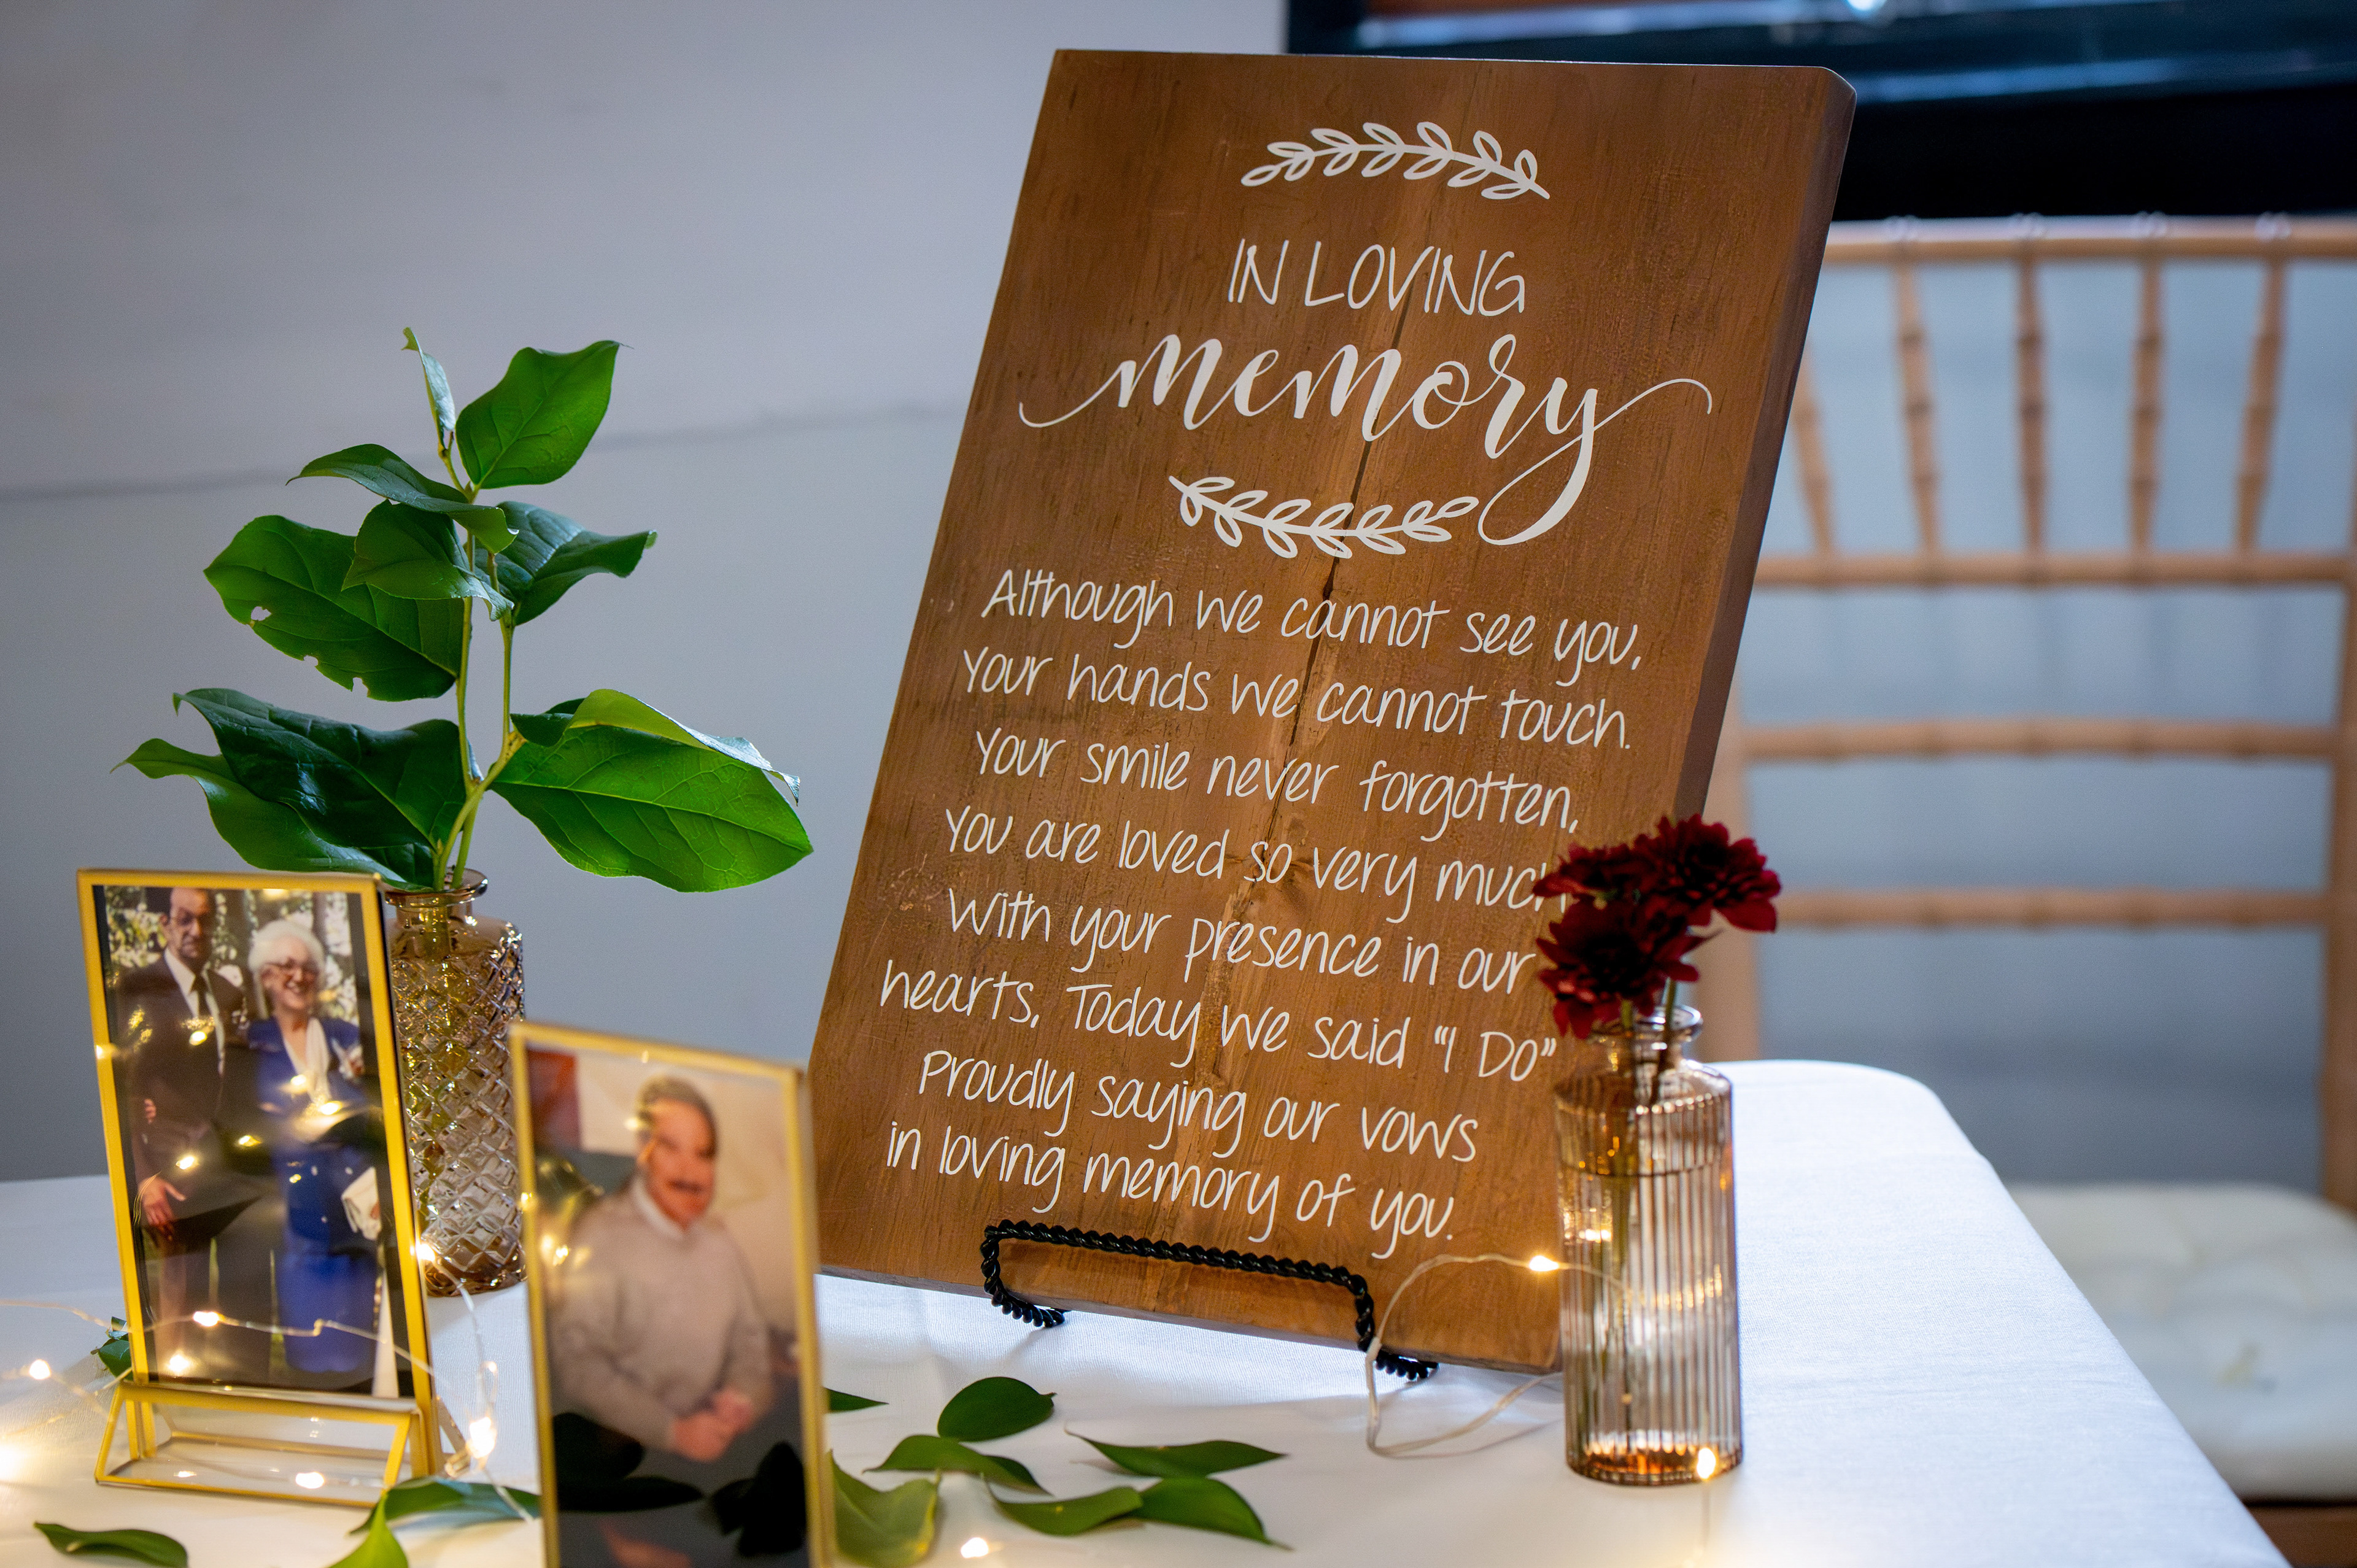 IN LOVING
memory
Although we cannot see you,
Your hands we cannot touch.
Your smile never forgotten,
You are loved so very much
With your presence in our
hearts, Today we said "I Do"
Proudly saying our vows
in loving memory of you.